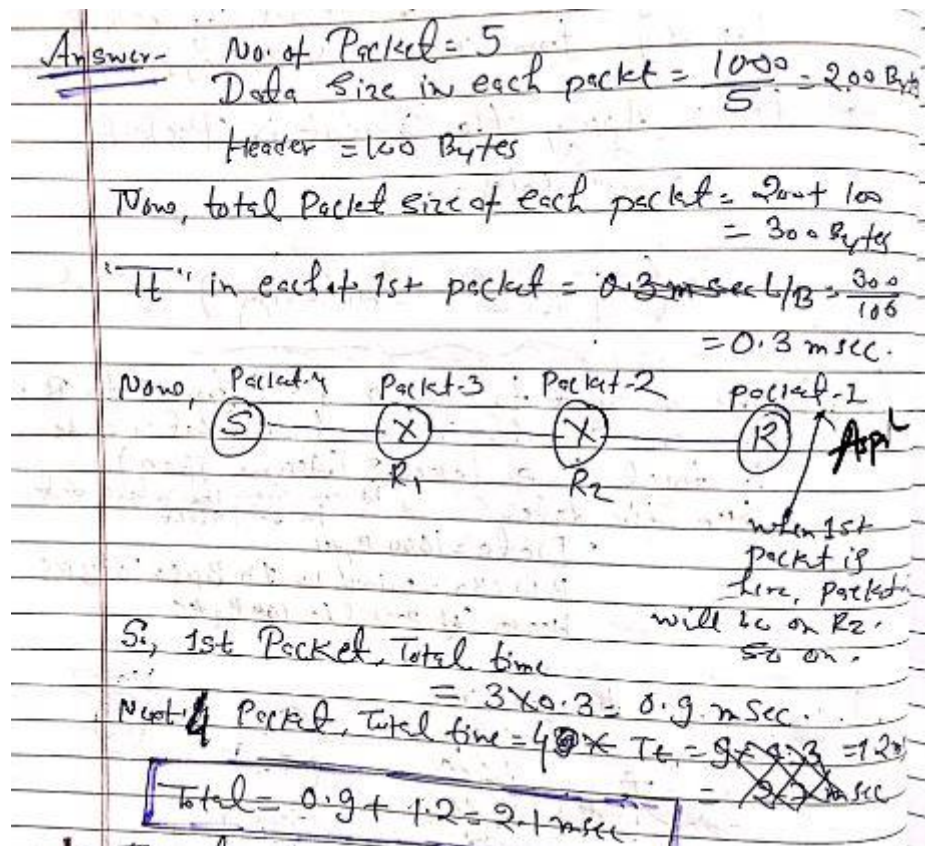 Answer- No. of Packet = 5
Data Size in each packt = 1000/5 = 200 Byte
Header = 100 Bytes
Now, total Packet size of each packet = 200 + 100
= 300 Bytes
"Tt" in each of 1st packet = 0.3 msec L/B = 300/10^6
= 0.3 msec.
Now, Packet-4 Packet-3 Packet-2 Packet-1
S X X R
R1 R2
when 1st
packet is
here, packet
will be on R2.
so on.
So, 1st Packet, Total time
= 3X0.3 = 0.9 msec.
Next 4 Packet, Total time = 4 X Tt = = 1.2
= msec
Total = 0.9 + 1.2 = 2.1 msec